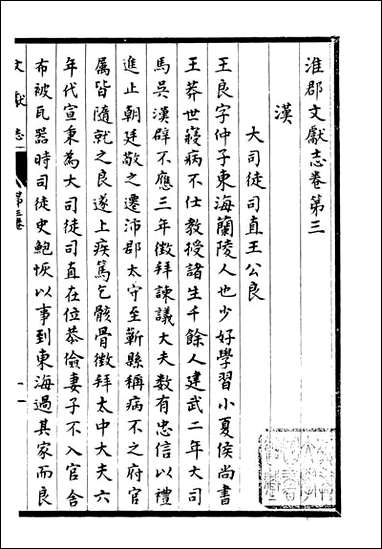 淮郡文獻志卷第三
漢
大司徒司直王公良
王良字仲子東海蘭陵人也少好學習小夏侯尚書
王莽世寢病不仕教授諸生千餘人建武二年大司
馬吳漢辟不應三年徵拜諫議大夫數有忠信以禮
進止朝廷敬之遷沛郡太守至蘄縣稱病不之府官
屬皆隨就之良遂上疾篤乞骸骨徵拜太中大夫六
年代宣秉為大司徒司直在位恭儉妻子不入官舍
布被瓦器時司徒史鮑恢以事到東海過其家而良
文獻志
第三卷
一